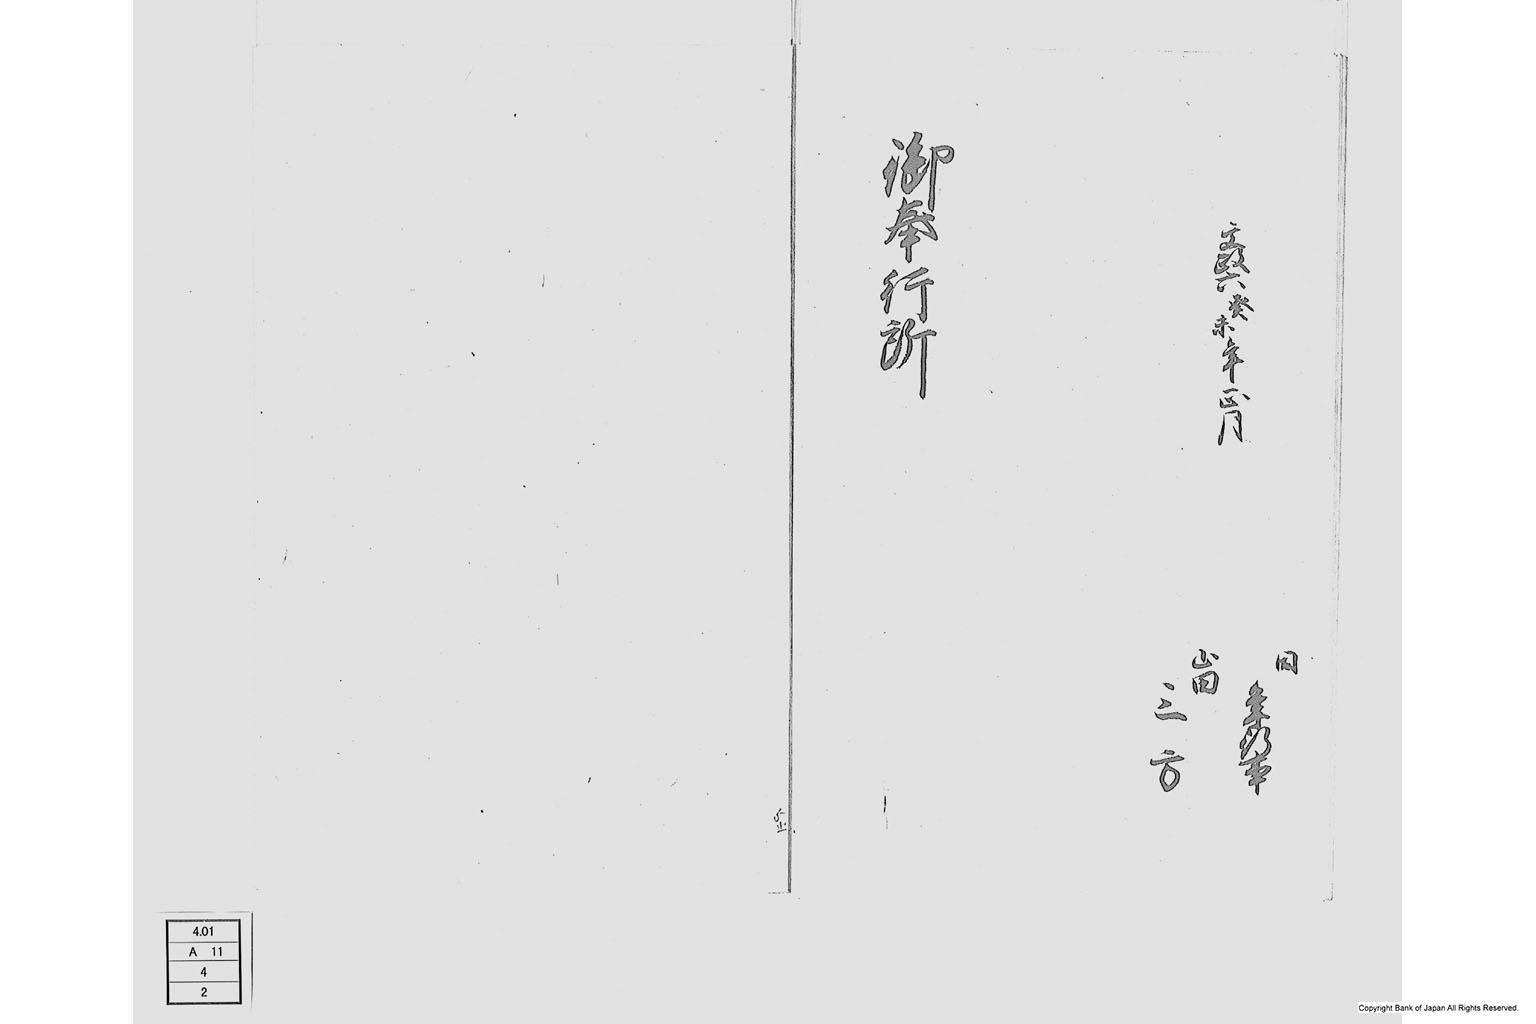 同
年行事
文政六癸未年正月
山田
三方
御奉行所
4.01
A 11
4
2
Copyright Bank of Japan All Rights Reserved.